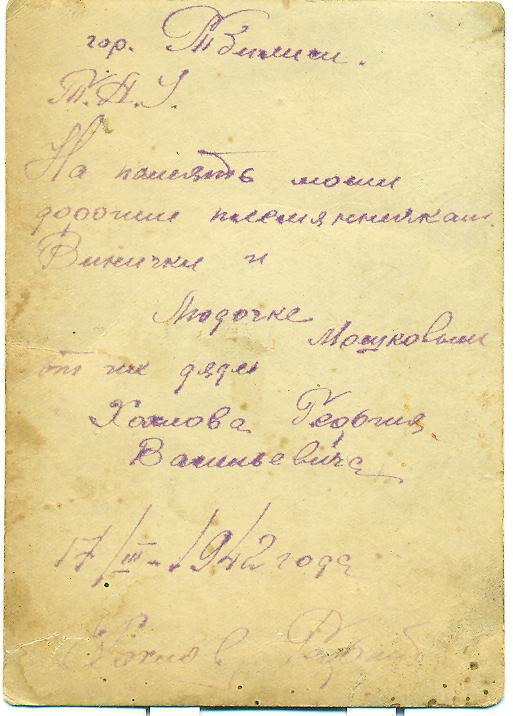 гор. Тбилиси.
Т.А.У.
На память моим
дорогим племянникам
Виничке и
Людочке Мошковым
от их дяди
Хохлова Георгия
Васильевича
17/III-1942 года
Хохлов